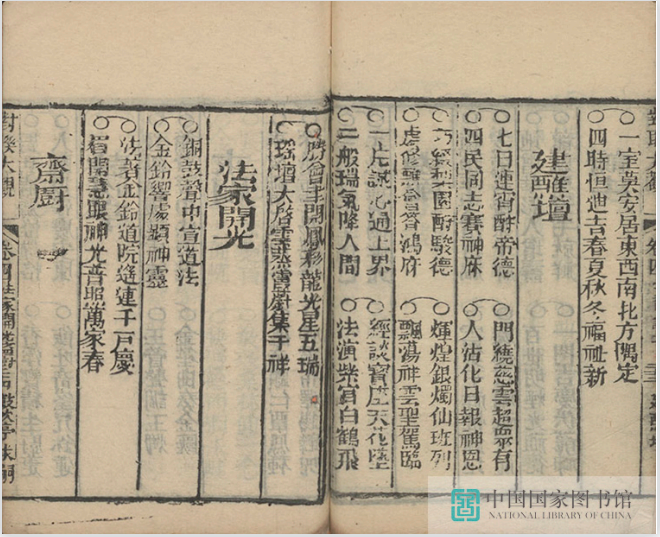 一室奠安居東西南北方隅定
四時恒迪吉春夏秋冬福祉新
建醮壇
七日連宵酧帝德
門繞慈雲超聖有
四民同志賽神府
人沾化日報神恩
輝煌銀燭仙班列
虔修
飄蕩祥雲聖駕臨
一片誠心通上界
經談寶座天花墜
二般瑞氣降人間
法演紫宮白鶴飛
勝會里開鳳彩龍光星五瑞
瑤壇大啓雲蒸霞蔚集千祥
法家開光
銅鼓聲中宣道法
金鈴響處顯神靈
法鼓金鈴道院縫連千戸慶
眉開慧眼神光普照萬家春
齋厨
對聯大觀
卷四
中国国家图书馆
NATIONAL LIBRARY OF CHINA